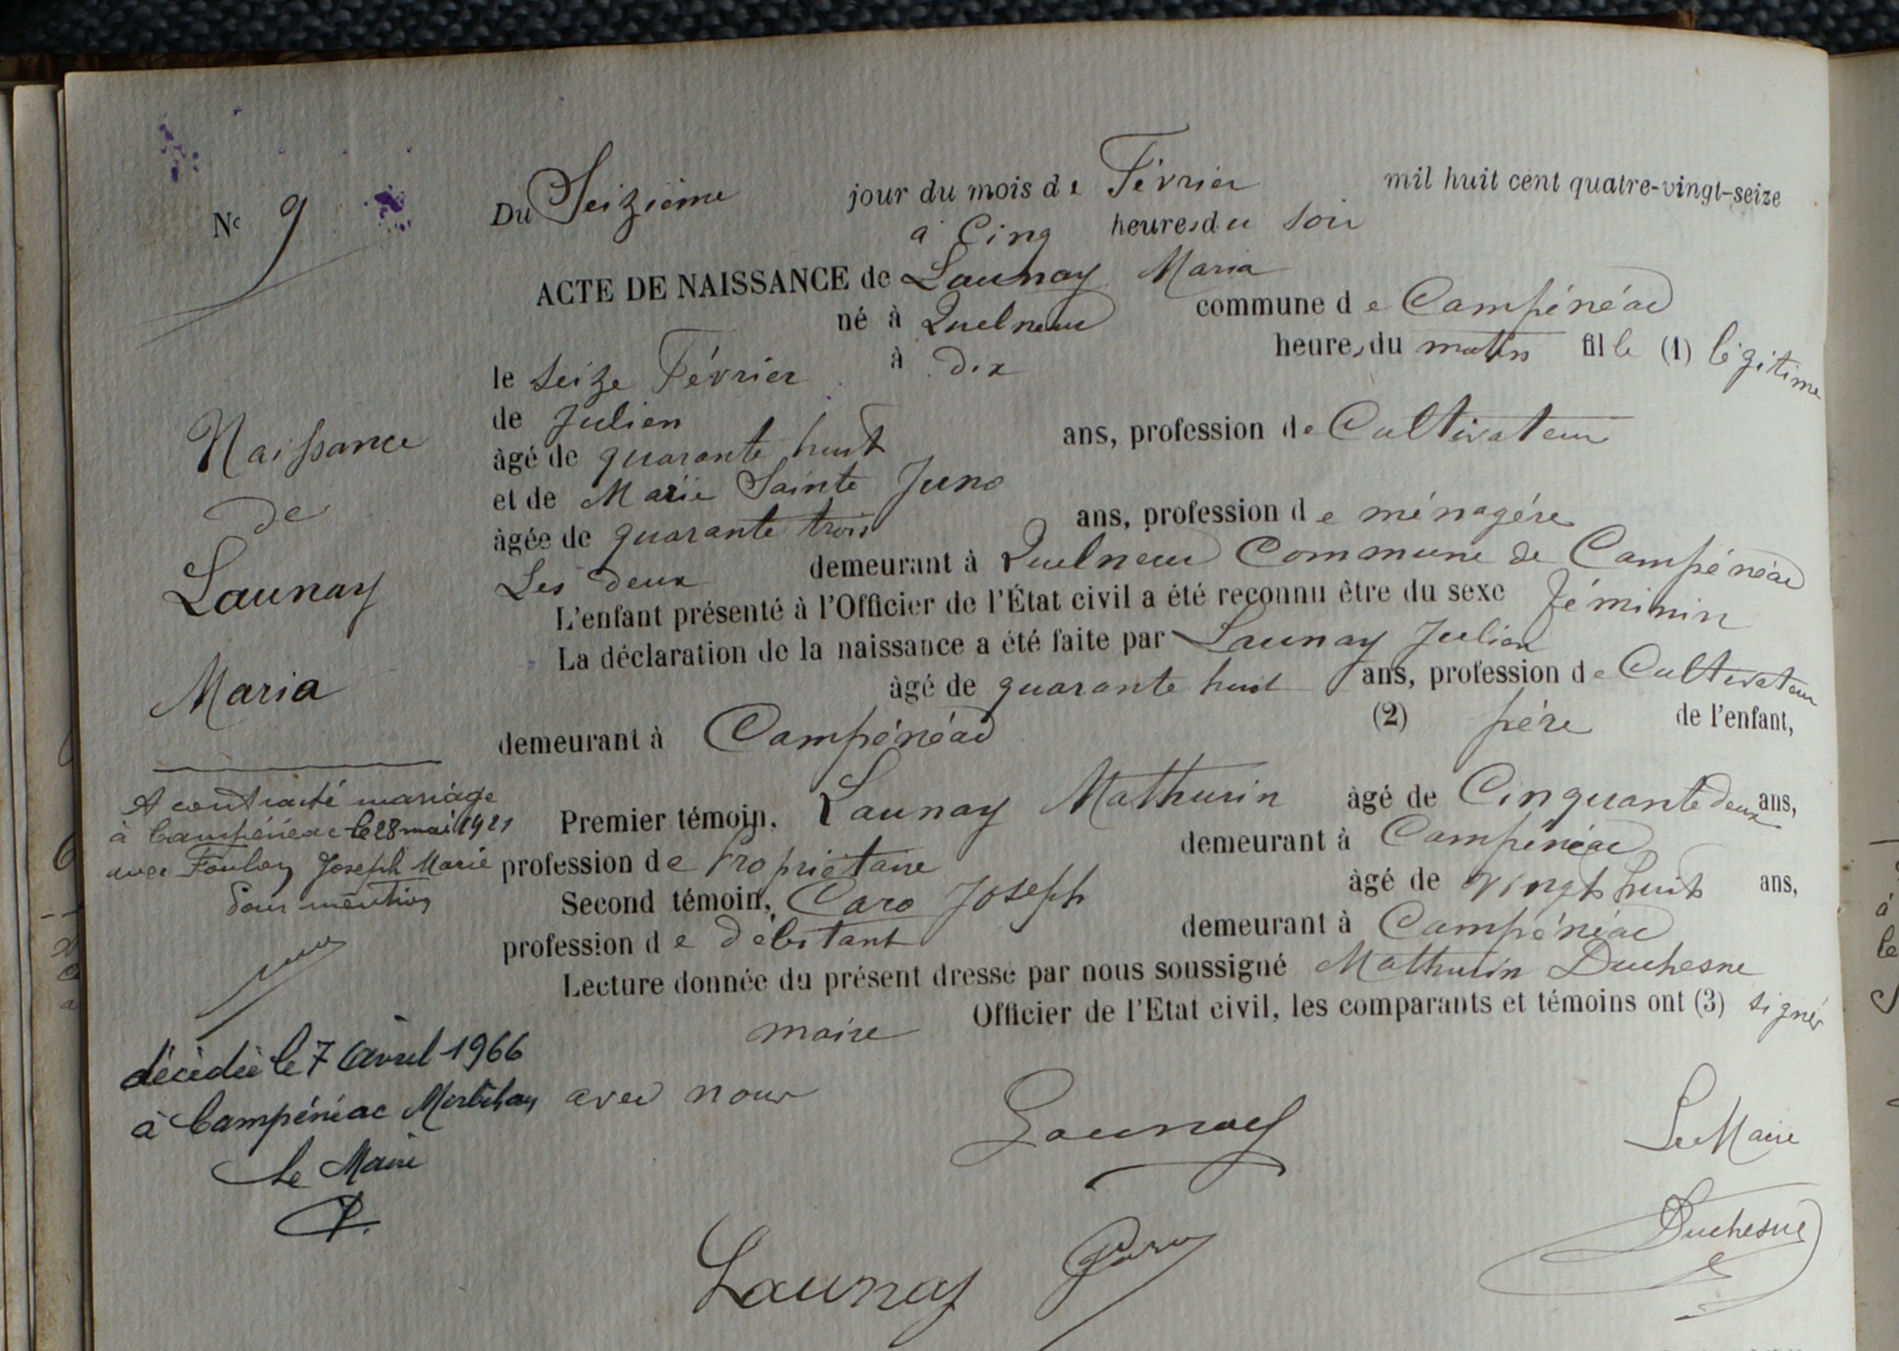 Nº 9
Du Seizième jour du mois de Février mil huit cent quatre-vingt-seize
à Cinq heures du soir
ACTE DE NAISSANCE de Launay Maria
né à Quelneuc commune de Campénéac
le seize Février à dix heures du matin fille (1) légitime
de Julien
âgé de quarante huit ans, profession de Cultivateur
et de Marie Sainte Juno
âgée de quarante trois ans, profession de ménagère
Les deux demeurant à Quelneuc Commune de Campénéac
L'enfant présenté à l'Officier de l'État civil a été reconnu être du sexe féminin
La déclaration de la naissance a été faite par Launay Julien
âgé de quarante huit ans, profession de Cultivateur
demeurant à Campénéac (2) père de l'enfant,
Premier témoin, Launay Mathurin âgé de Cinquante deux ans,
profession de Propriétaire demeurant à Campénéac
Second témoin, Caro Joseph âgé de vingt huit ans,
profession de débitant demeurant à Campénéac
Lecture donnée du présent dressé par nous soussigné Mathurin Duchesne
maire Officier de l'Etat civil, les comparants et témoins ont (3) signés
avec nous
Naissance
de
Launay
Maria
A contracté mariage
à Campénéac le 28 mai 1921
avec Joseph Marie
Pour mention
décédée le 7 avril 1966
à Campénéac Morbihan
Le Maire
Launay
Le Maire
Launay Caro
Duchesne